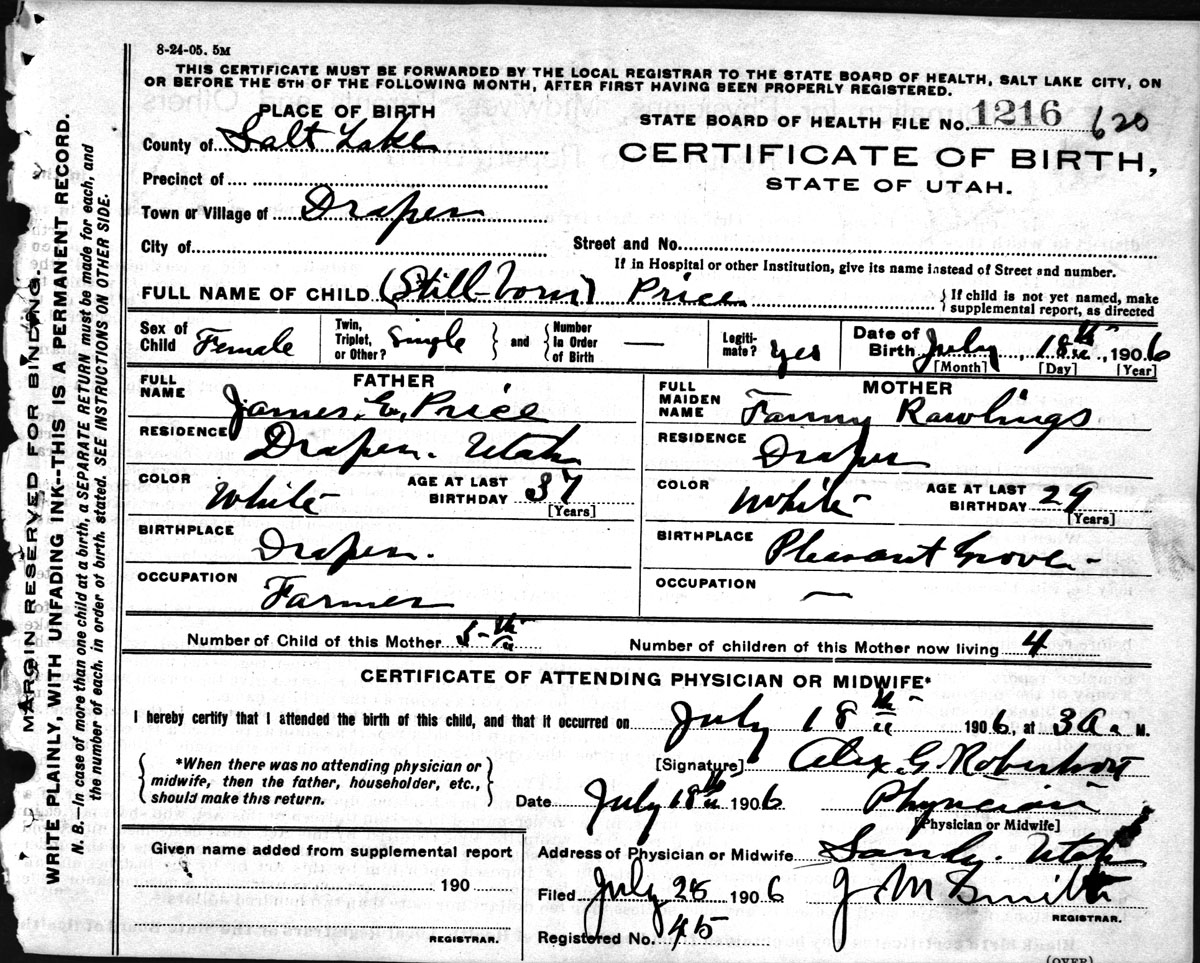 8-24-05. 5M
THIS CERTIFICATE MUST BE FORWARDED BY THE LOCAL REGISTRAR TO THE STATE BOARD OF HEALTH, SALT LAKE CITY, ON
OR BEFORE THE 5TH OF THE FOLLOWING MONTH, AFTER FIRST HAVING BEEN PROPERLY REGISTERED.
PLACE OF BIRTH
STATE BOARD OF HEALTH FILE No. 1216 620
County of Salt Lake
CERTIFICATE OF BIRTH,
STATE OF UTAH.
Precinct of
Town or Village of Draper
City of
Street and No.
If in Hospital or other Institution, give its name instead of Street and number.
FULL NAME OF CHILD (Still-born) Price
If child is not yet named, make
supplemental report, as directed
Sex of Child Female
Twin, Triplet, or Other? Single and Number In Order of Birth —
Legitimate? yes
Date of Birth July, 18th, 1906
[Month] [Day] [Year]
FATHER
FULL NAME James E. Price
RESIDENCE Draper. Utah
COLOR White AGE AT LAST BIRTHDAY 37
[Years]
BIRTHPLACE Draper.
OCCUPATION Farmer
MOTHER
FULL MAIDEN NAME Fanny Rawlings
RESIDENCE Draper
COLOR White AGE AT LAST BIRTHDAY 29
[Years]
BIRTHPLACE Pleasant Grove
OCCUPATION —
Number of Child of this Mother 5th
Number of children of this Mother now living 4
CERTIFICATE OF ATTENDING PHYSICIAN OR MIDWIFE*
I hereby certify that I attended the birth of this child, and that it occurred on July 18th 1906, at 3 a. M.
*When there was no attending physician or
midwife, then the father, householder, etc.,
should make this return.
[Signature] Alex. G. Robertson
Date July 18th 1906 Physician
[Physician or Midwife]
Address of Physician or Midwife Sandy. Utah
Filed July 25 1906 J. M. Smith
REGISTRAR.
Registered No. 45
Given name added from supplemental report
190
REGISTRAR.
(OVER)
MARGIN RESERVED FOR BINDING.
WRITE PLAINLY, WITH UNFADING INK--THIS IS A PERMANENT RECORD.
N. B.--In case of more than one child at a birth, a SEPARATE RETURN must be made for each, and
the number of each, in order of birth, stated. SEE INSTRUCTIONS ON OTHER SIDE.